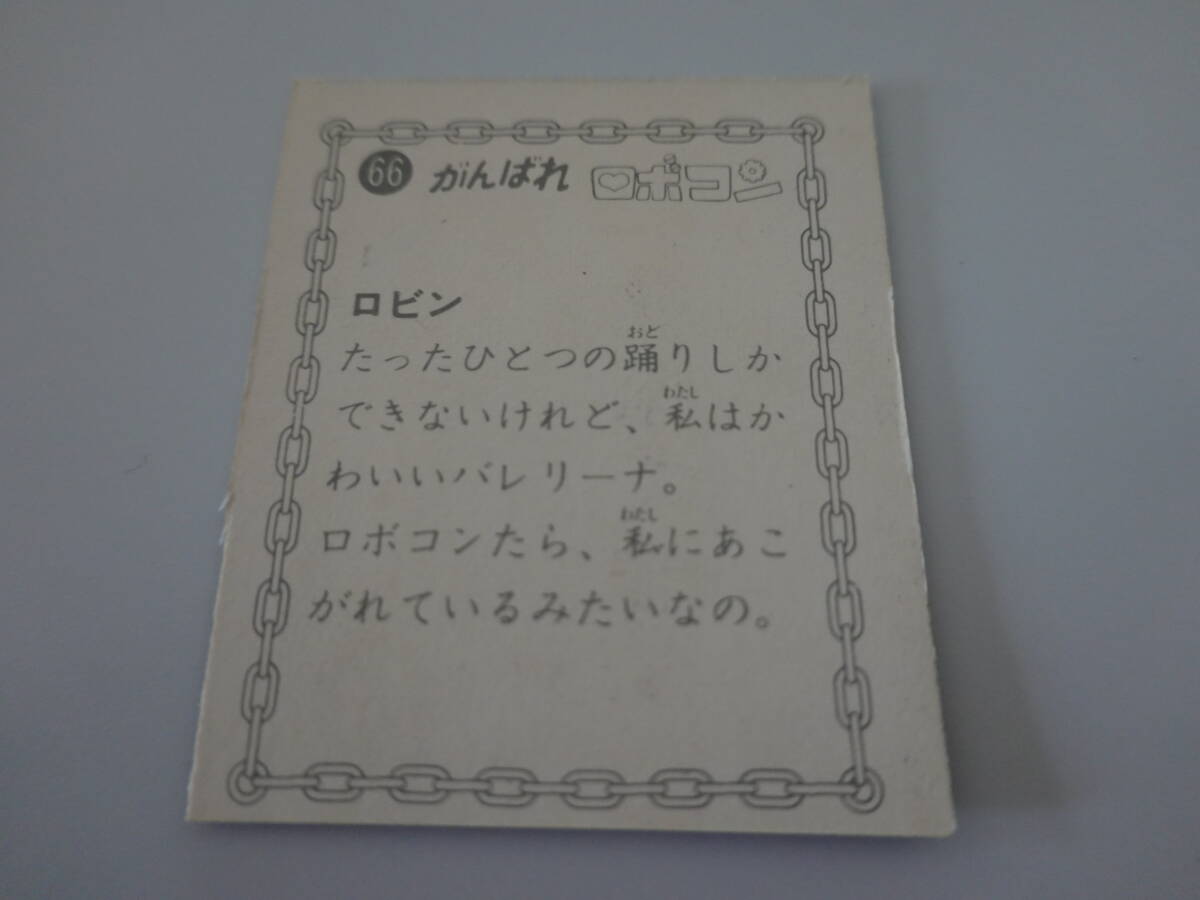 66 がんばれ ロボコン
ロビン
たったひとつの踊りしか
できないけれど、私はか
わいいバレリーナ。
ロボコンたら、私にあこ
がれているみたいなの。